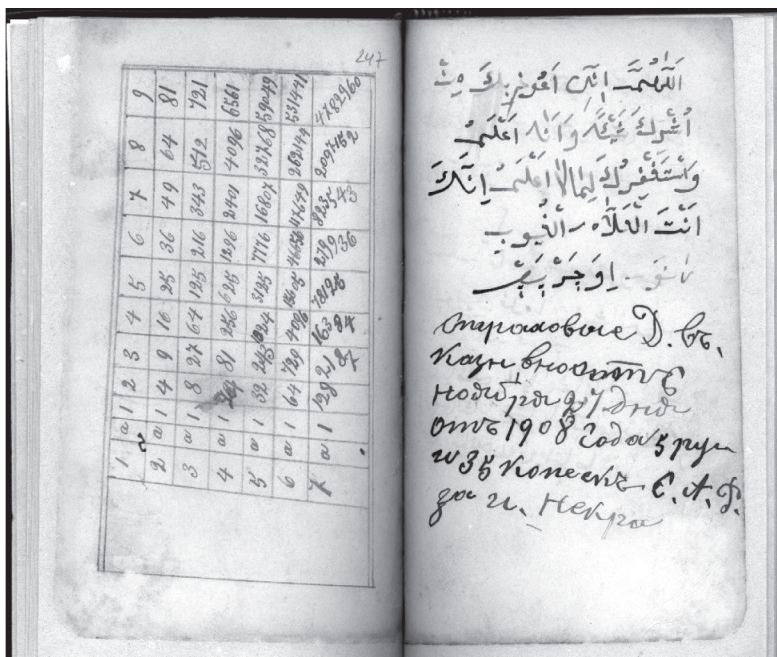 247
1 a 1 2 3 4 5 6 7 8 9
2 a 1 4 9 16 25 36 49 64 81
3 a 1 8 27 64 125 216 343 512 721
4 a 1 81 256 625 1296 2401 4096 6561
5 a 1 32 243 1024 3125 7776 16807 32768 59049
6 a 1 64 729 4096 46656 117649 262149 531441
7 a 1 128 2187 16384 78125 279936 823543 2097152 4782960
اَللّٰهُمَّ اِنِّى اَعُوذُ بِكَ مِنْ
اُشْرِكَ شَيْئًا وَاَنَا اَعْلَمُ
وَاَسْتَغْفِرُكَ لِمَا لَا اَعْلَمُ اِنَّكَ
اَنْتَ الْعَلَّامُ الْغُيُوبِ
страховые Д. въ.
казн вноситъ
ноября 27 дня
отъ 1908 Года 5 руп
и 35 копеекъ Е. А. Ф.
за н. Некра